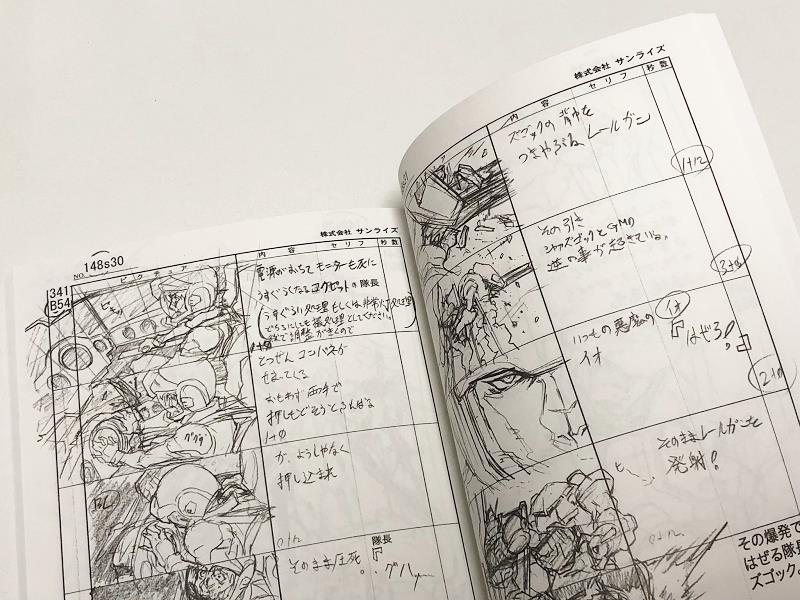 株式会社 サンライズ
148s30
NO.
341
B54
ピクチュア
内容
セリフ
秒数
電源がおちて モニターも死に
うすぐらくなるコクピットの隊長
(うすぐらい処理 もしくは非常灯処理
どちらにしても撮処理としてください。
後で調整がきくので
とつぜん コンパネが
せまってくる
おもわず 両手で
押しもどそうとふんばる
1+0
ググッ
が、ようしゃなく
押し込まれ
0+12
そのまま圧死。
隊長
『グハッ
株式会社 サンライズ
内容
セリフ
秒数
ズゴックの背中を
つきやぶる レールガン
1+12
その引き
ジャズゴックとGMの
逆の事が起きている。
いつもの悪魔の
イオ
イオ
『はぜろ!』
2+0
そのままレールガンを
発射!
その爆発で
はぜる隊長
ズゴック。